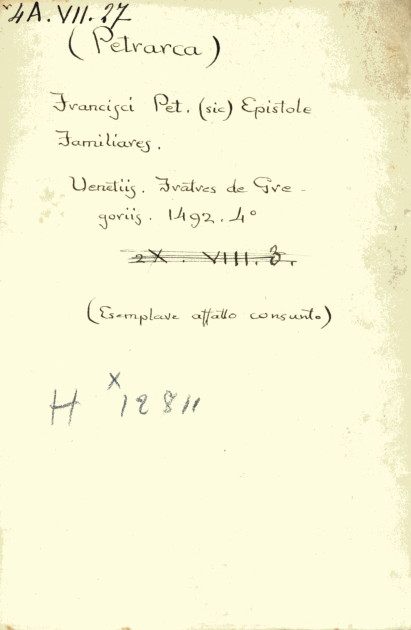 4A.VII.27
(Petrarca)
Francisci Pet. (sic) Epistole
Familiares.
Venetiis. Fratres de Gre-
goriis. 1492. 4°
2X. VIII. 3.
(Esemplare affatto consunto)
H x 12811